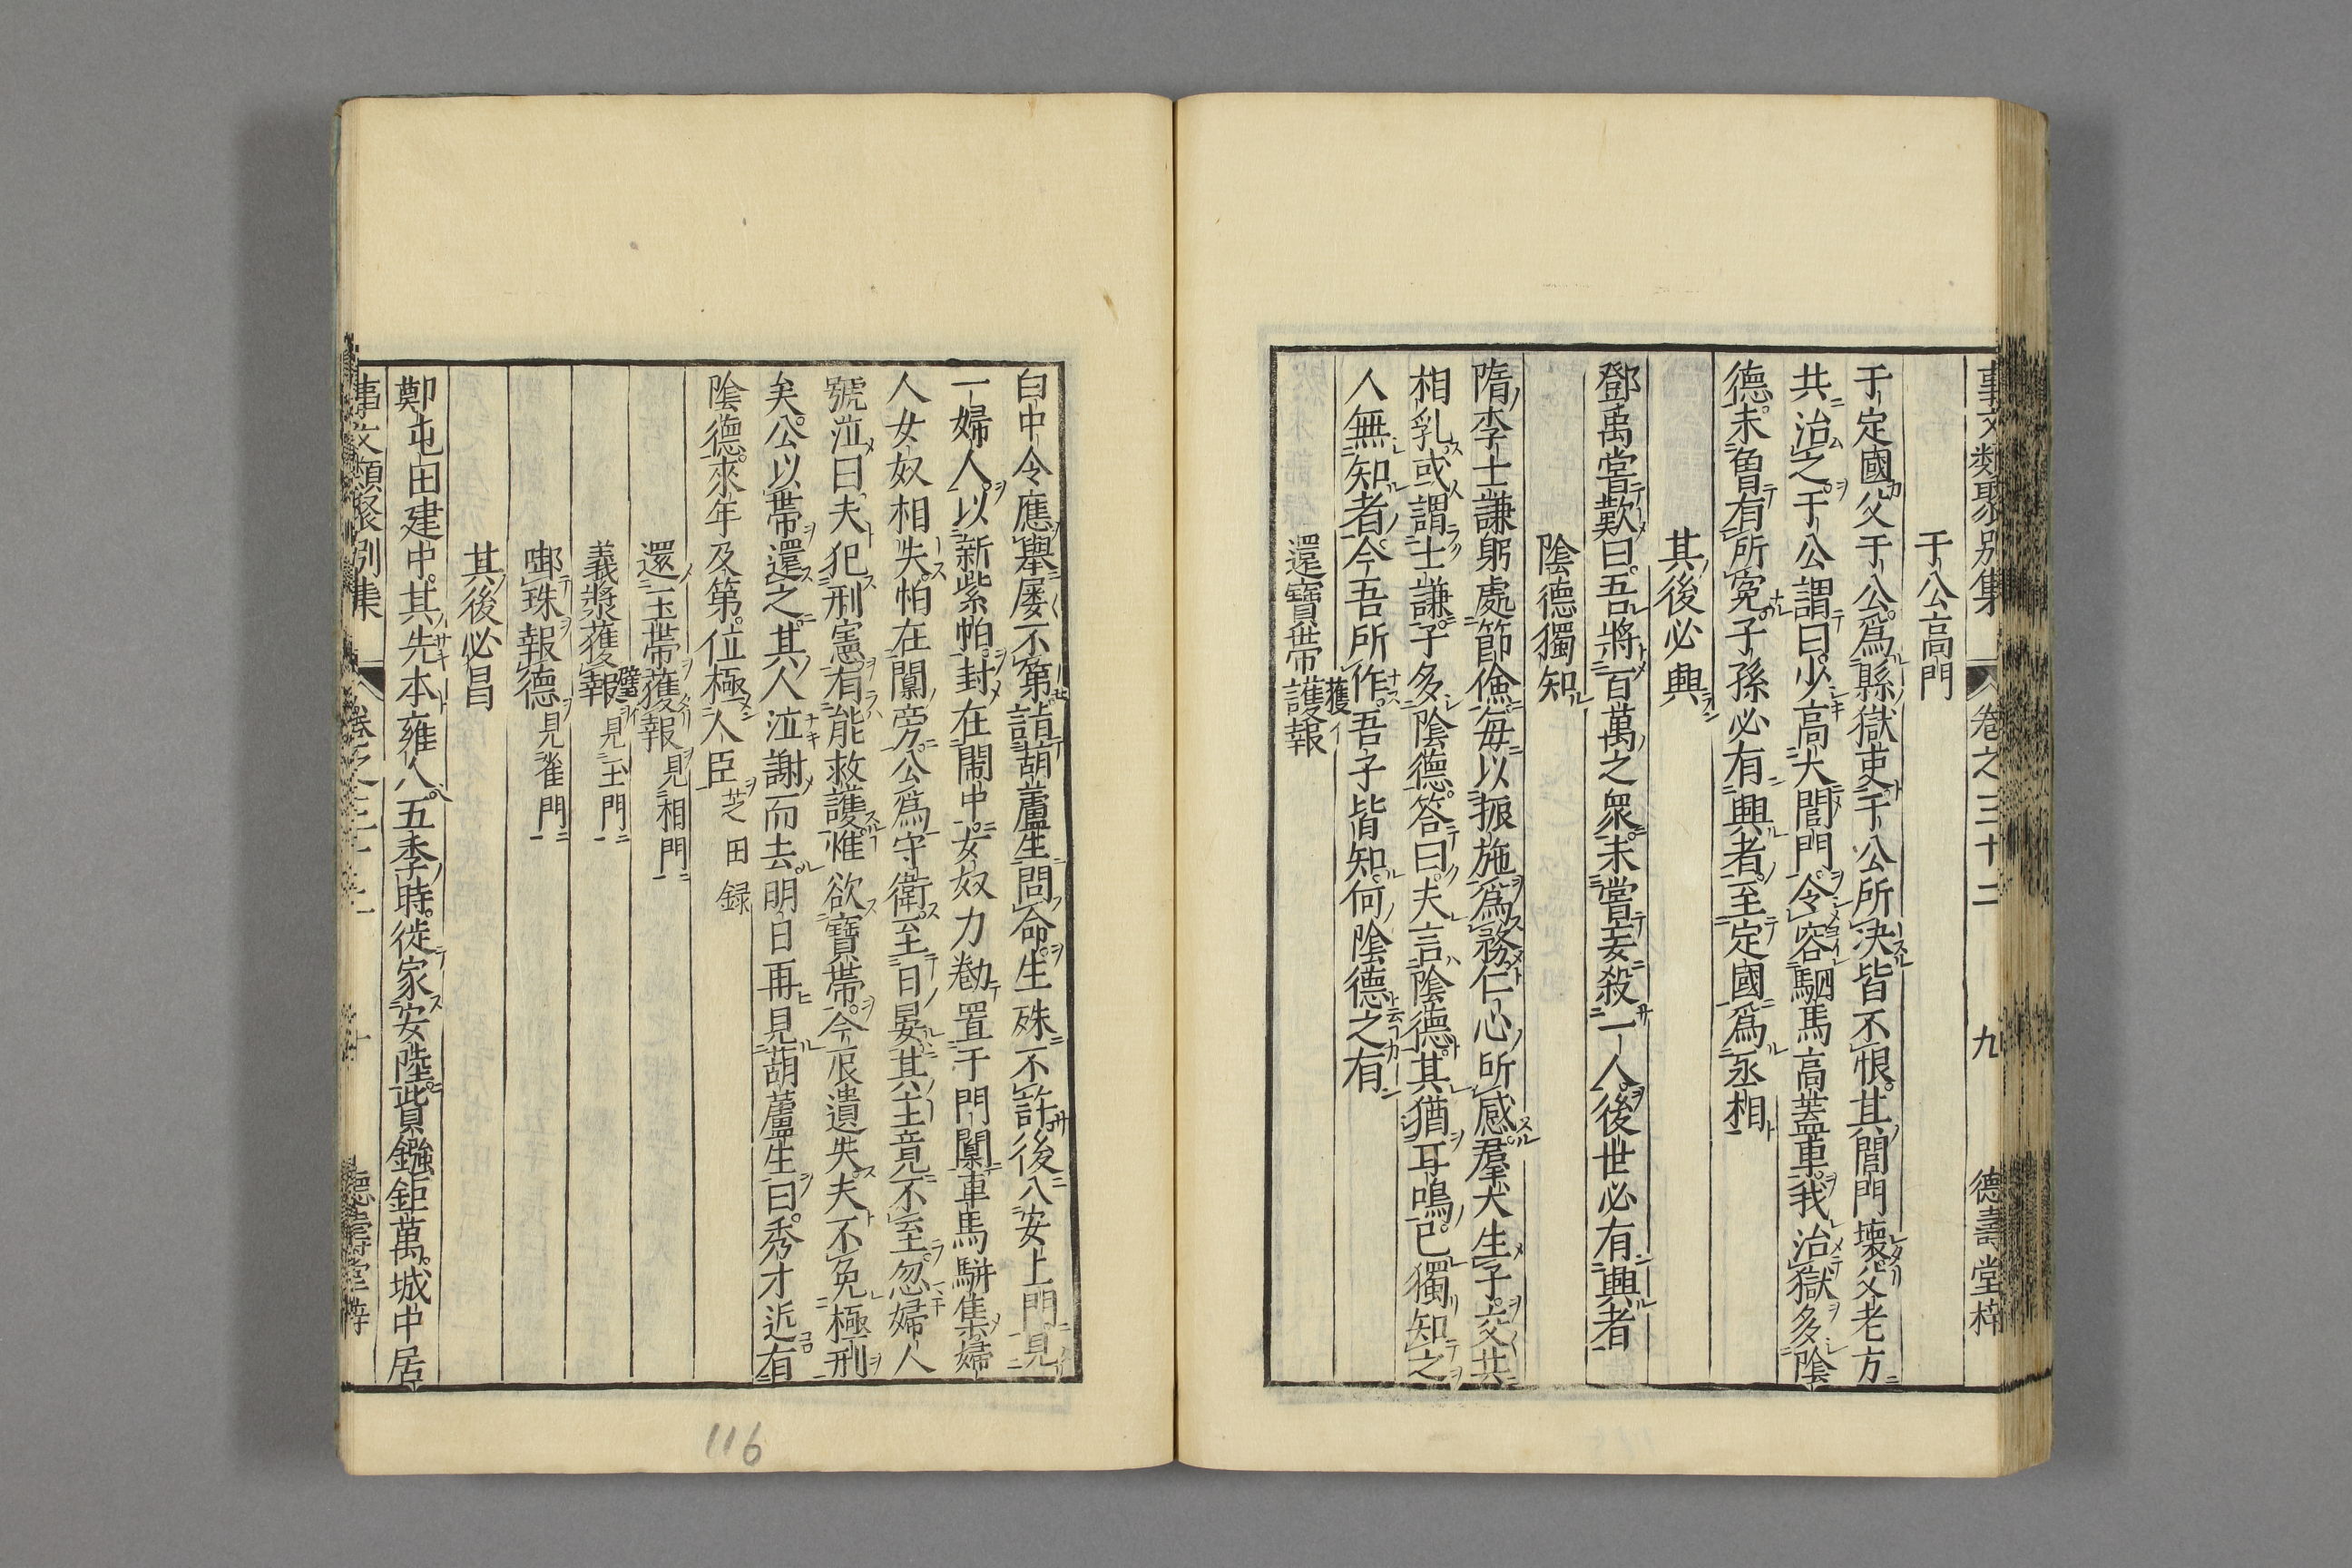 事文類聚別集 卷之三十二 九 德壽堂梓
于公高門
于定國父于公爲縣獄吏于公所決皆不恨其閭門壞父老方
共治之于公謂曰少高大閭門令容駟馬高蓋車我治獄多陰
德未魯有所冤子孫必有興者至定國爲丞相
其後必興
鄧禹嘗歎曰吾將百萬之衆未嘗妄殺一人後世必有興者
陰德獨知
隋李士謙躬處節儉毎以振施爲務仁心所感羣犬生子交共
相乳或謂士謙子多陰德答曰夫言陰德其猶耳鳴已獨知之
人無知者今吾所作吾子皆知何陰德之有
還寶帶護報
獲イ
白中令應舉屡不第詣葫蘆生問命生殊不許後入安上門見
一婦人以新紫帕封在閙中女奴力勌置于門闑車馬駢集婦
人女奴相失帕在闑旁公爲守衛至日晏其主竟不至忽婦人
號泣曰夫犯刑憲有能救護惟欲寶帶今
遺失夫不免極刑
矣公以帶還之其人泣謝而去明日再見葫蘆生曰秀才近有
陰德來年及第位極人臣 芝田録
還玉帶獲報 見相門
義漿獲報 見玉門
璧イ
啣珠報德 見雀門
其後必昌
鄭屯田建中其先本雍人五季時徙家安陸貲鏹鉅萬城中居
事文類聚別集 卷之三十二 十 德壽堂梓
116